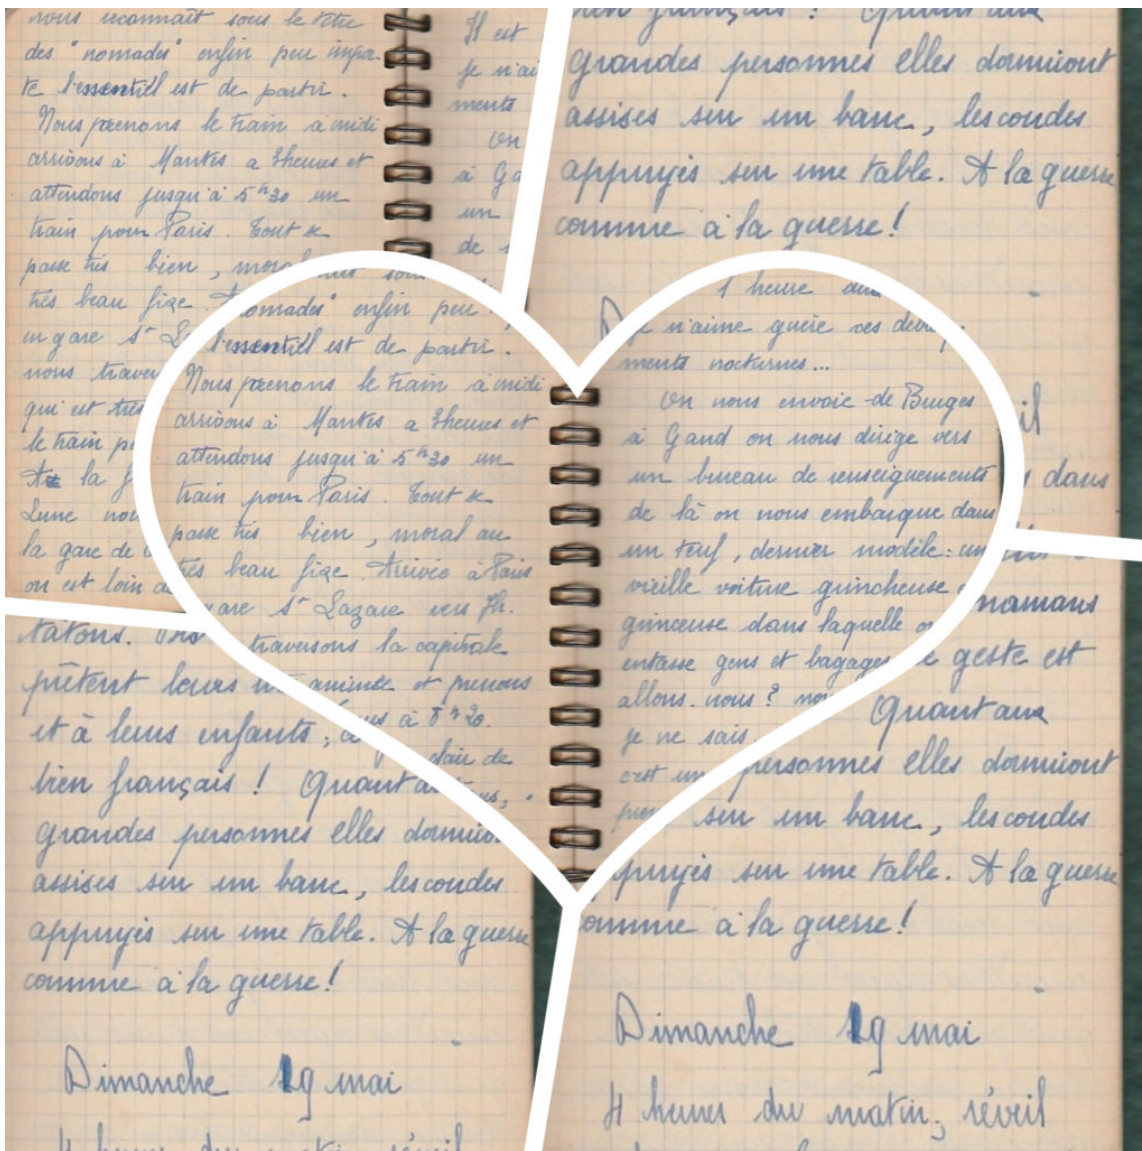 nous reconnaît sous le titre
des "nomades" enfin peu impor-
te l'essentiel est de partir.
Nous prenons le train à midi
arrivons à Mantes a 2heures et
attendons jusqu'à 5h30 un
train pour Paris. Tout se
passe très bien, moral
très beau fixe.
en gare St
nous
qui est très
le train
la
Lune
la gare de
on est loin
Il est
je n'ai
ments
On
à
un
de
bien français ! Quant aux
grandes personnes elles dormiront
assises sur un banc, les coudes
appuyés sur une table. A la guerre
comme à la guerre !
dans
"nomades" enfin peu
l'essentiel est de partir.
Nous prenons le train à midi
arrivons à Mantes a 2heures et
attendons jusqu'à 5h30 un
train pour Paris. Tout se
passe très bien, moral au
très beau fixe. Arrivée à Paris
gare St Lazare vers 7h.
traversons la capitale
animée et prenons
à 8h20.
clair de
1 heure
je n'aime guère ces
ments nocturnes...
On nous envoie de Bruges
à Gand on nous dirige vers
un bureau de renseignements
de là on nous embarque dans
un teuf, dernier modèle : un
vieille voiture grincheuse
grinceuse dans laquelle
entasse gens et bagages
allons-nous ?
je ne sais
c'est
tatons.
prêtent leurs
et à leurs enfants,
bien français ! Quant
grandes personnes elles
assises sur un banc, les coudes
appuyés sur une table. A la guerre
comme à la guerre !
Dimanche 19 mai
4 heures du matin, réveil
mamans
geste est
Quant aux
personnes elles dormiront
sur un banc, les coudes
appuyés sur une table. A la guerre
comme à la guerre !
Dimanche 19 mai
4 heures du matin, réveil